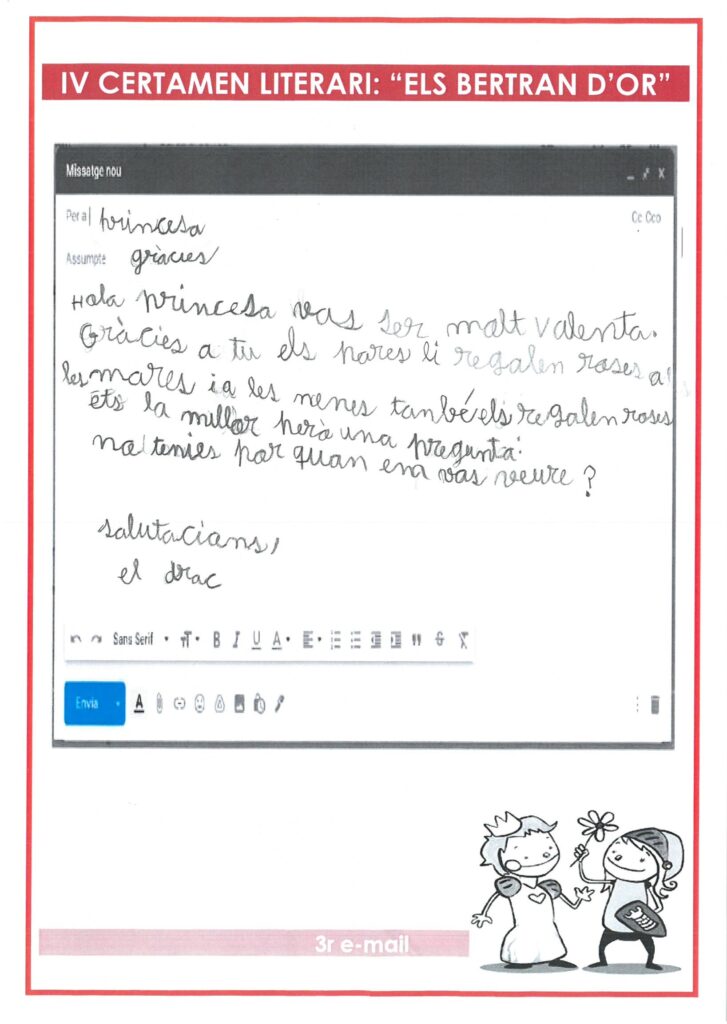 IV CERTAMEN LITERARI: “ELS BERTRAN D’OR”
Missatge nou
Per a princesa
Cc Cco
Assumpte gràcies
Hola princesa vas ser molt valenta.
Gràcies a tu els pares li regalen roses a
les mares i a les nenes també els regalen roses
ets la millor però una pregunta:
no tenies por quan em vas veure?
salutacions,
el drac
Sans Serif
Envia
3r e-mail